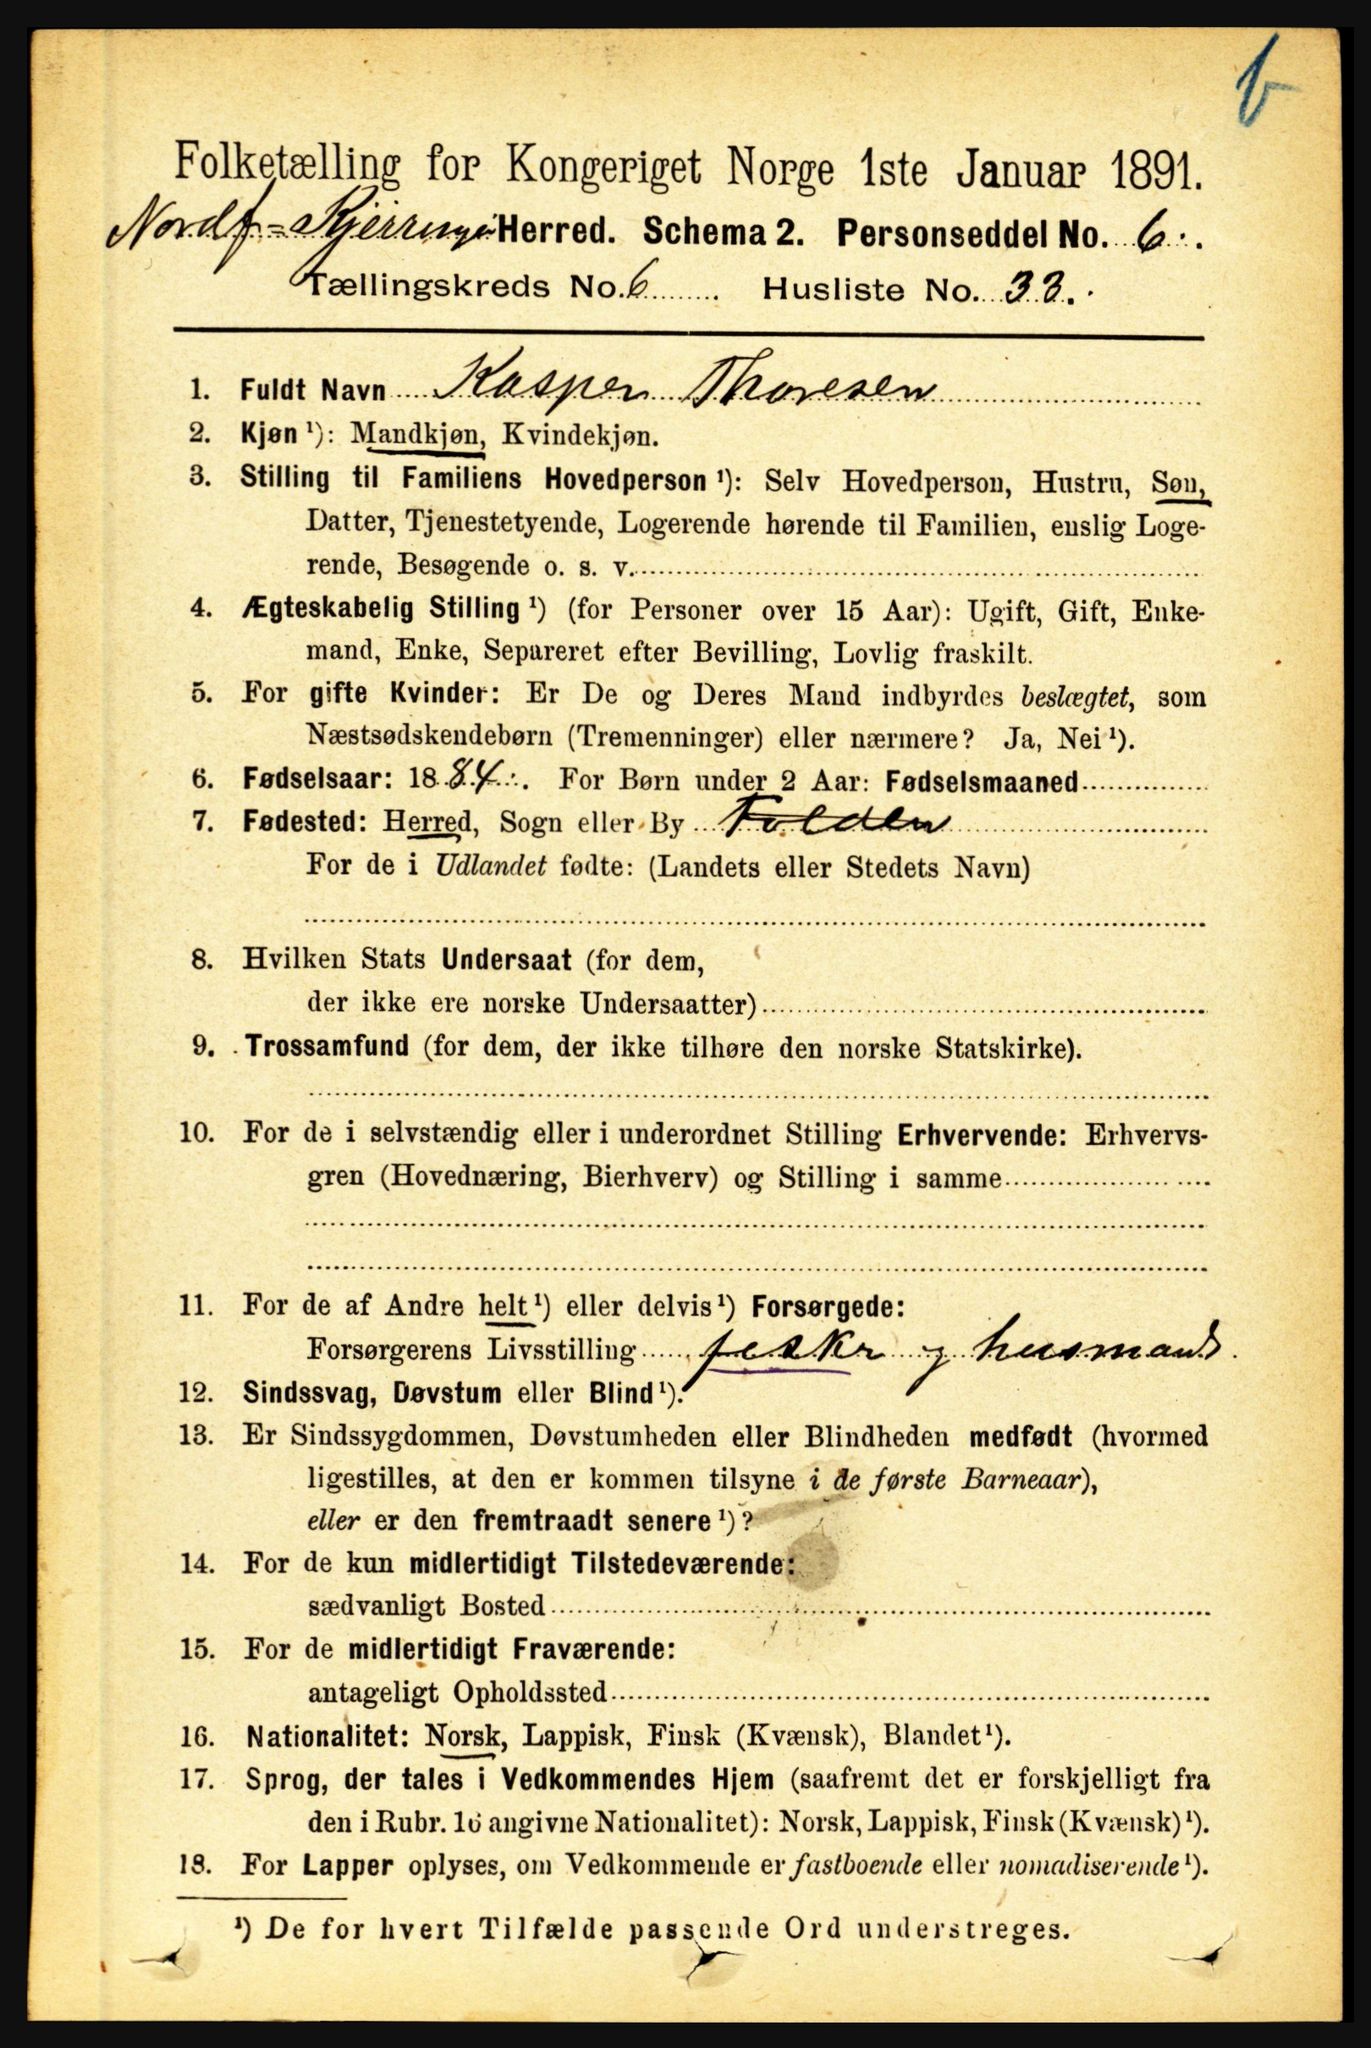 b
Folketælling for Kongeriget Norge 1ste Januar 1891.
Nordf=Kjerringø Herred. Schema 2. Personseddel No. 6.
Tællingskreds No. 6 Husliste No. 33.
1. Fuldt Navn Kasper Thoresen
2. Kjøn ¹): Mandkjøn, Kvindekjøn.
3. Stilling til Familiens Hovedperson ¹): Selv Hovedperson, Hustru, Søn,
Datter, Tjenestetyende, Logerende hørende til Familien, enslig Loge-
rende, Besøgende o. s. v.
4. Ægteskabelig Stilling ¹) (for Personer over 15 Aar): Ugift, Gift, Enke-
mand, Enke, Separeret efter Bevilling, Lovlig fraskilt.
5. For gifte Kvinder: Er De og Deres Mand indbyrdes beslægtet, som
Næstsødskendebørn (Tremenninger) eller nærmere? Ja, Nei ¹).
6. Fødselsaar: 1884. For Børn under 2 Aar: Fødselsmaaned
7. Fødested: Herred, Sogn eller By Folden
For de i Udlandet fødte: (Landets eller Stedets Navn)
8. Hvilken Stats Undersaat (for dem,
der ikke ere norske Undersaatter)
9. Trossamfund (for dem, der ikke tilhøre den norske Statskirke).
10. For de i selvstændig eller i underordnet Stilling Erhvervende: Erhvervs-
gren (Hovednæring, Bierhverv) og Stilling i samme
11. For de af Andre helt ¹) eller delvis ¹) Forsørgede:
Forsørgerens Livsstilling feskr g husmand
12. Sindssvag, Døvstum eller Blind ¹).
13. Er Sindssygdommen, Døvstumheden eller Blindheden medfødt (hvormed
ligestilles, at den er kommen tilsyne i de første Barneaar),
eller er den fremtraadt senere ¹)?
14. For de kun midlertidigt Tilstedeværende:
sædvanligt Bosted
15. For de midlertidigt Fraværende:
antageligt Opholdssted
16. Nationalitet: Norsk, Lappisk, Finsk (Kvænsk), Blandet ¹).
17. Sprog, der tales i Vedkommendes Hjem (saafremt det er forskjelligt fra
den i Rubr. 16 angivne Nationalitet): Norsk, Lappisk, Finsk (Kvænsk) ¹).
18. For Lapper oplyses, om Vedkommende er fastboende eller nomadiserende ¹).
¹) De for hvert Tilfælde passende Ord understreges.